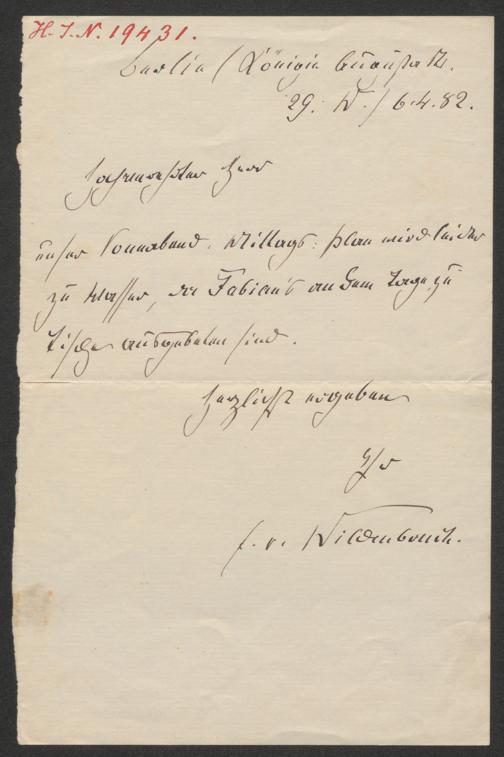 H. I. N. 19431.
Berlin / Königin Augusta Str.
29. W. / 6.4.82.
Hochverehrter Herr
unser Sonnabend-Mittags-Plan wird leider
zu Wasser, da Fabian's an dem Tage zu
Tische ausgebeten sind.
Herzlichst ergeben
Ihr
E. v. Wildenbruch.